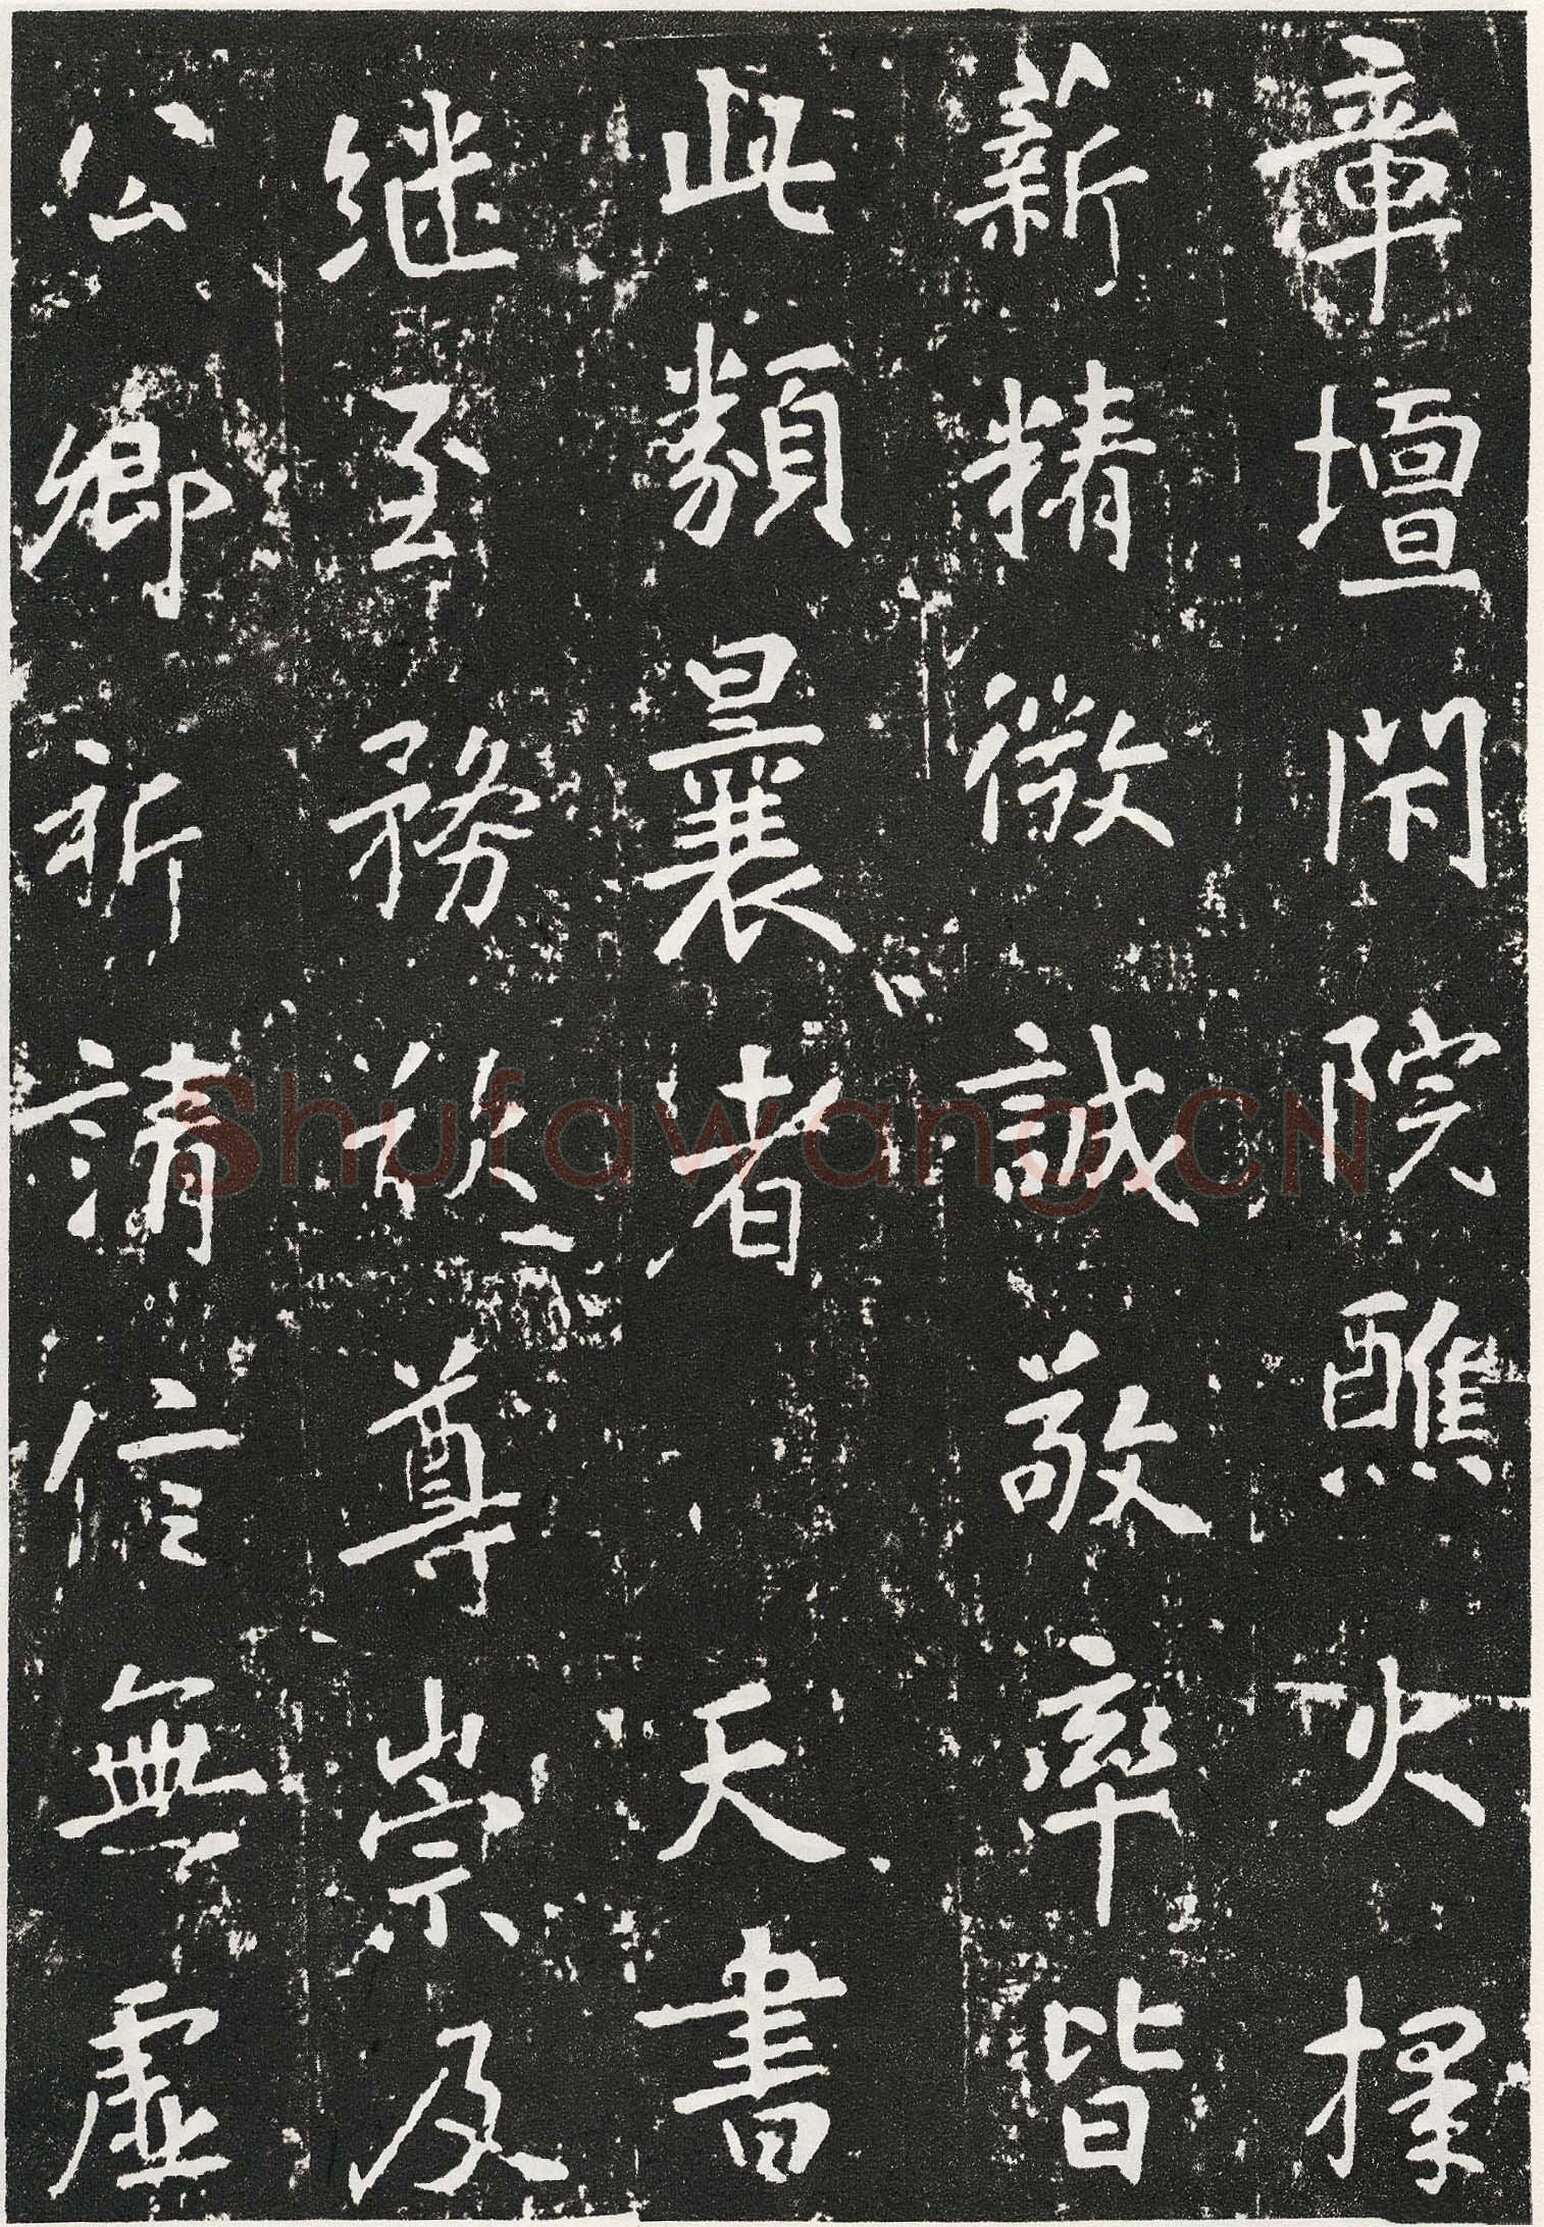 章壇閇院醮火擇
薪精徵誠敬率皆
此類曩者天書
继至務欲尊崇及
公卿祈請信無虛
Shufawang.CN